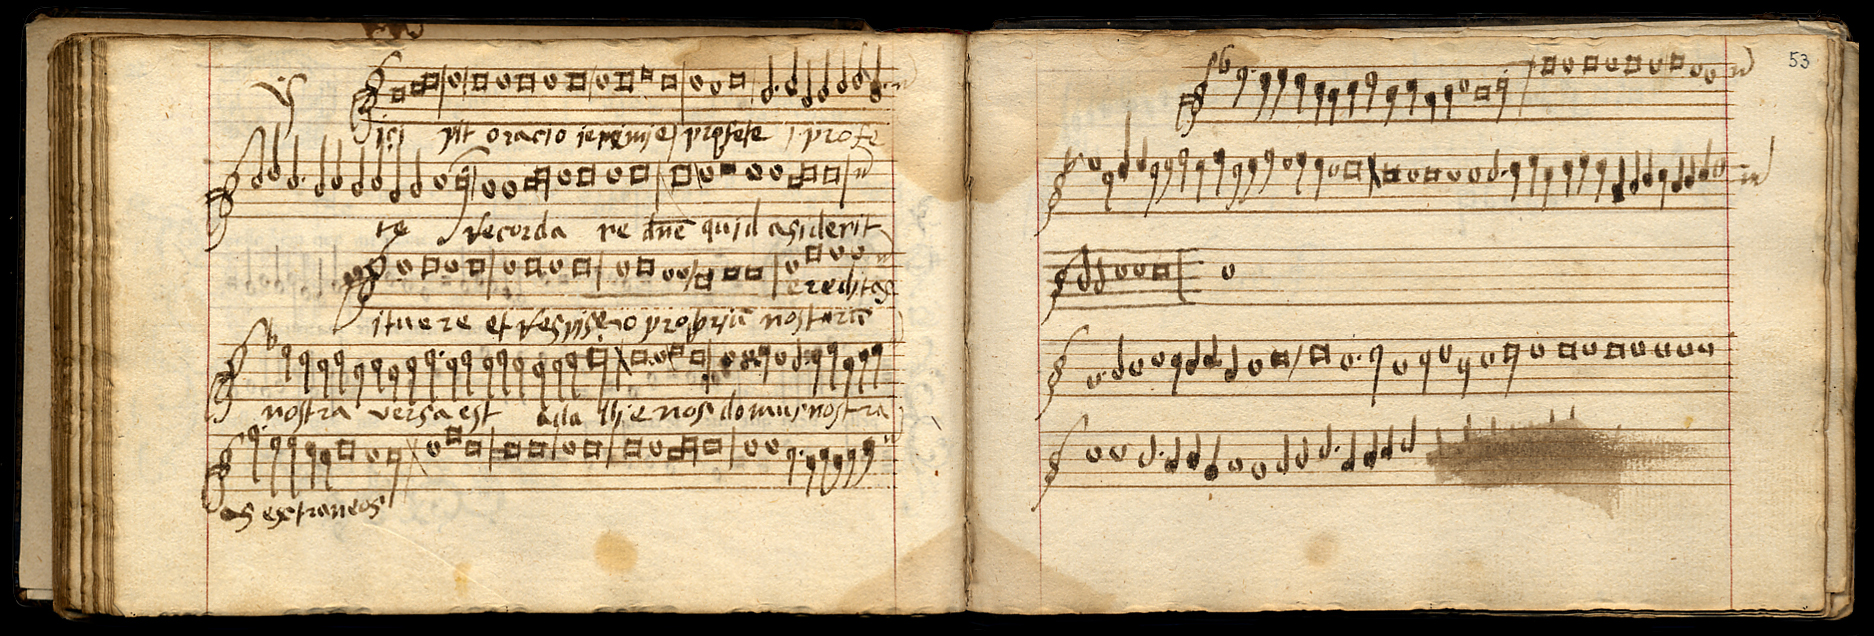 53
ici pit oracio ieremie profete i profe
te Recorda re dñe quid asiderit
ereditas
ituere et Respise o propriũ nostrũ
nostra versa est ada lhienos domusnostra
os extraneos